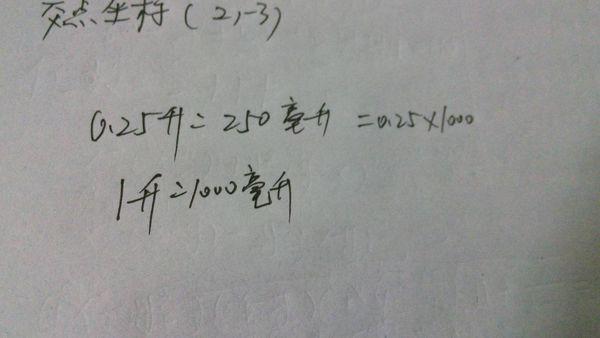 交点坐标(2,-3)
0.25升=250毫升=0.25×1000
1升=1000毫升